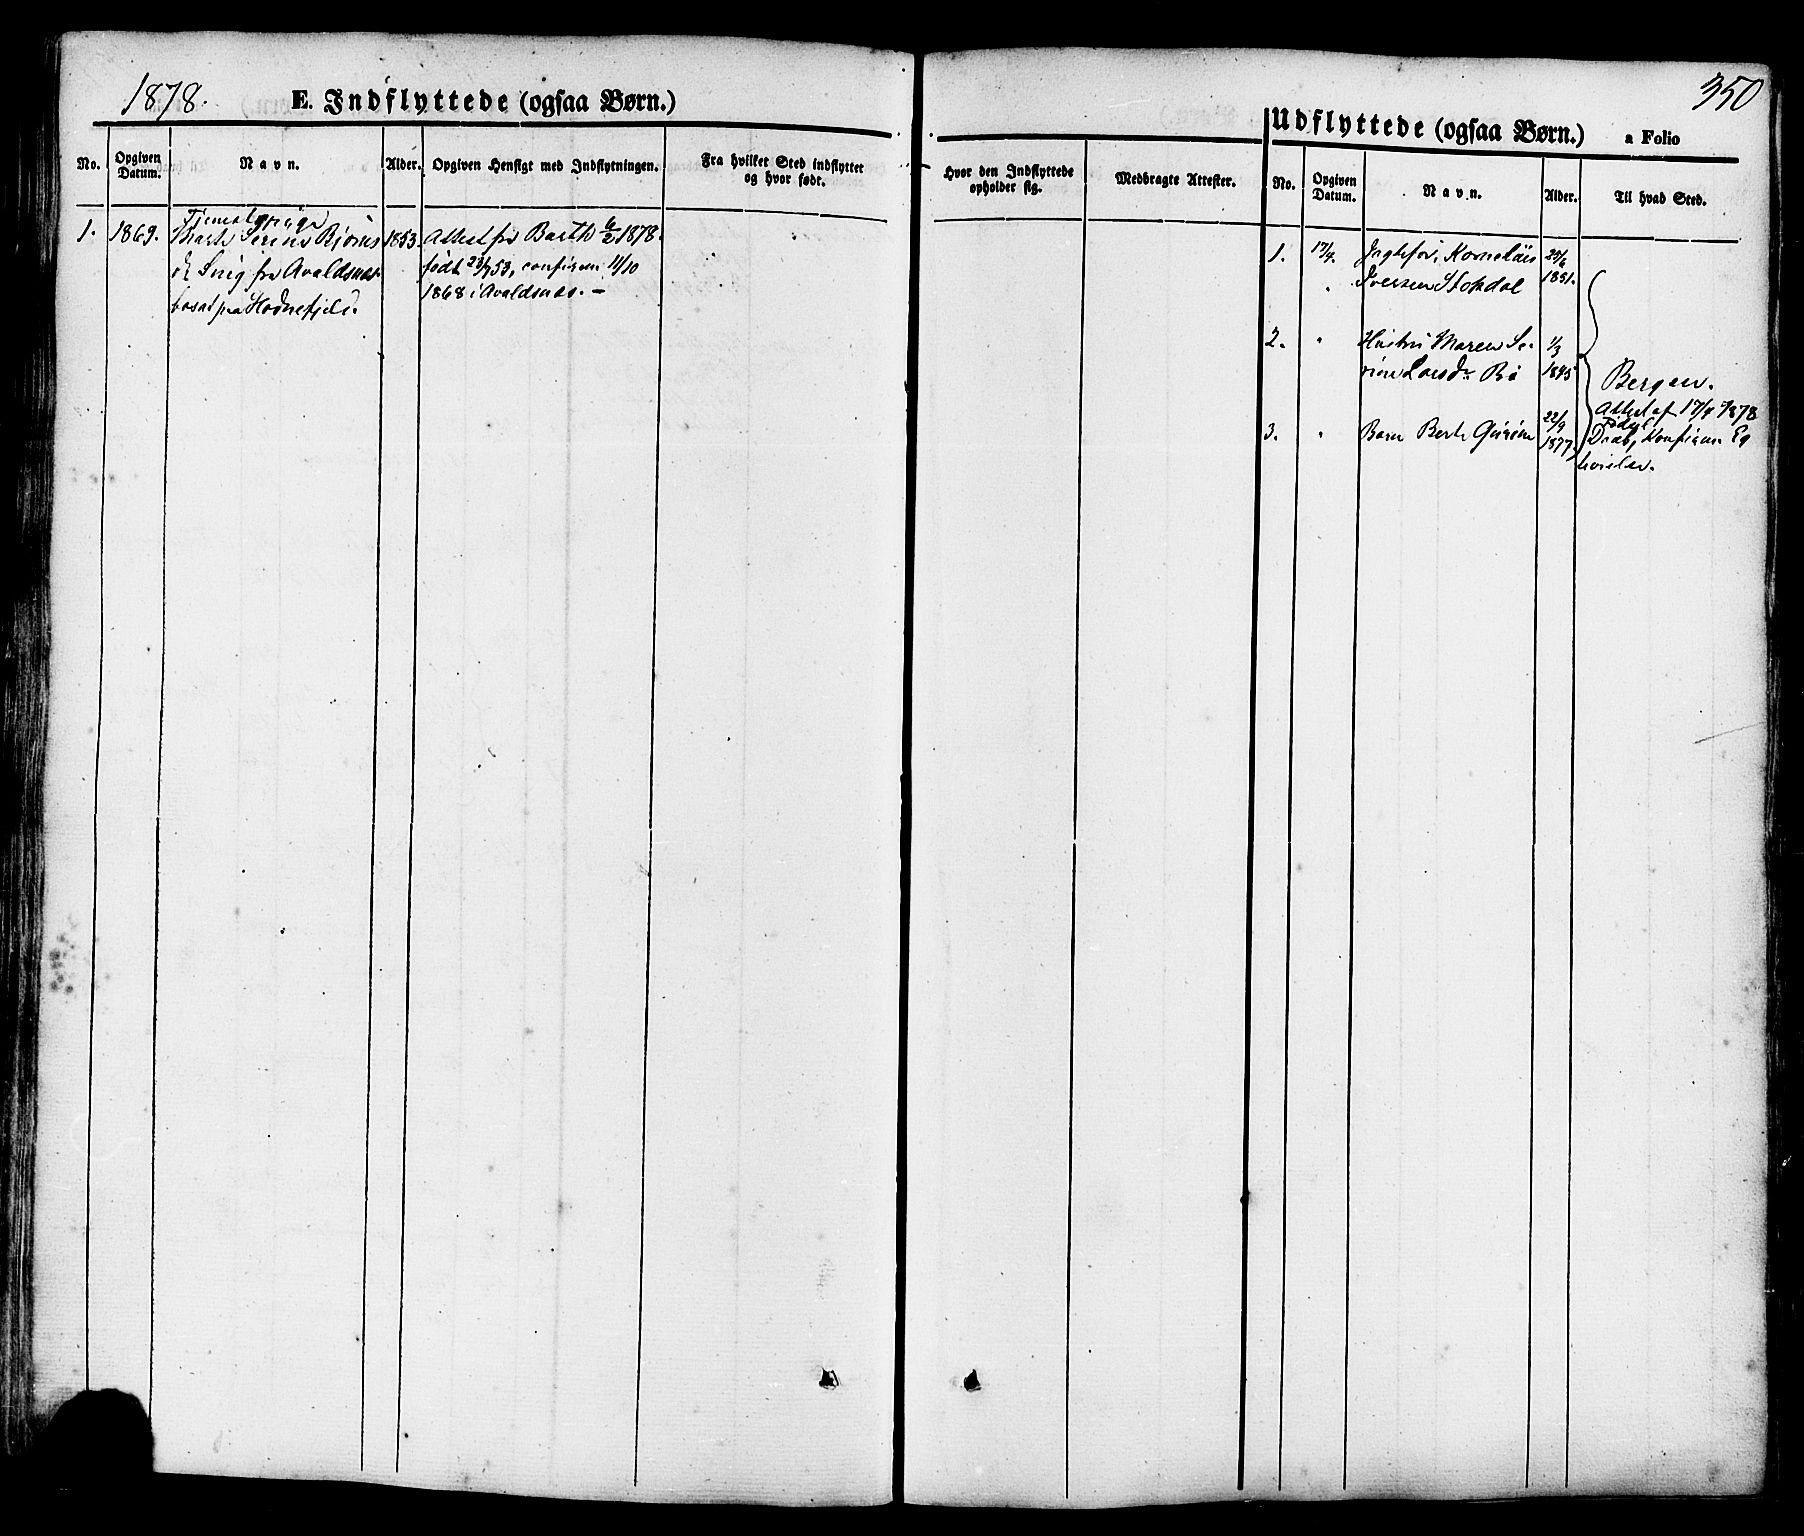 1878.
E. Indflyttede (ogsaa Børn.)
No.
Opgiven Datum.
Navn.
Alder.
Opgiven Hensigt med Indflytningen.
Fra hvilket Sted indflyttet og hvor født.
1.
1869.
Tjenestepige
Serine Bjørns
fra Avaldsnæs
bosat paa
1853.
Attest fra Barth 6/2 1878.
født 23/7 53, confirm 11/10
1868 i Avaldsnæs. —
350
Hvor den Indflyttede opholder sig.
Medbragte Attester.
Udflyttede (ogsaa Børn.)
a Folio
No.
Opgiven Datum.
Navn.
Alder.
Til hvad Sted.
1.
17/4.
Kornelius
Iversen Stokdal
1851.
2.
"
Hustru Maren Se-
rine Larsdr. Bø
1/3
1845
Bergen.
Attest af 17/4 1878
3.
"
Barn Berte
22/9
1877